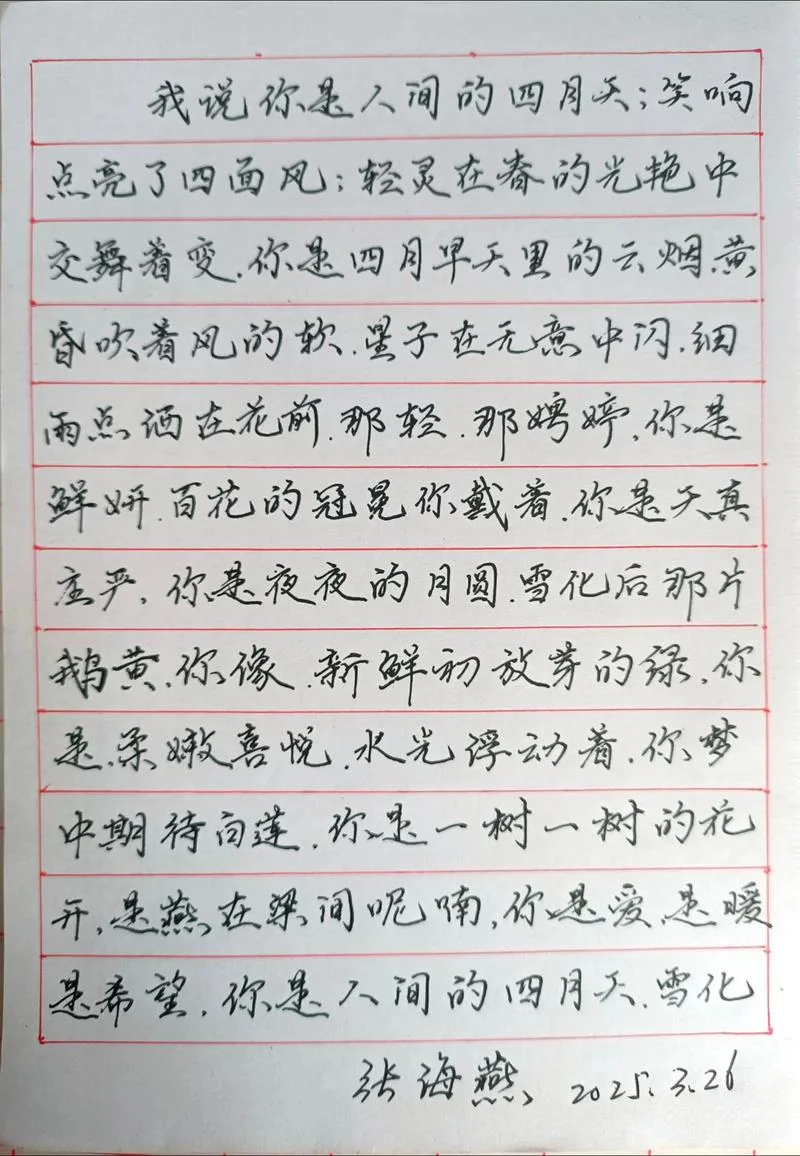 我说你是人间的四月天;笑响
点亮了四面风;轻灵在春的光艳中
交舞着变.你是四月早天里的云烟.黄
昏吹着风的软.星子在无意中闪.细
雨点洒在花前.那轻.那娉婷.你是
鲜妍.百花的冠冕你戴着.你是天真
庄严,你是夜夜的月圆.雪化后那片
鹅黄.你像.新鲜初放芽的绿.你
是.柔嫩喜悦.水光浮动着.你梦
中期待白莲.你是一树一树的花
开,是燕在梁间呢喃,你是爱.是暖
是希望.你是人间的四月天.雪化
张海燕 2025.3.26